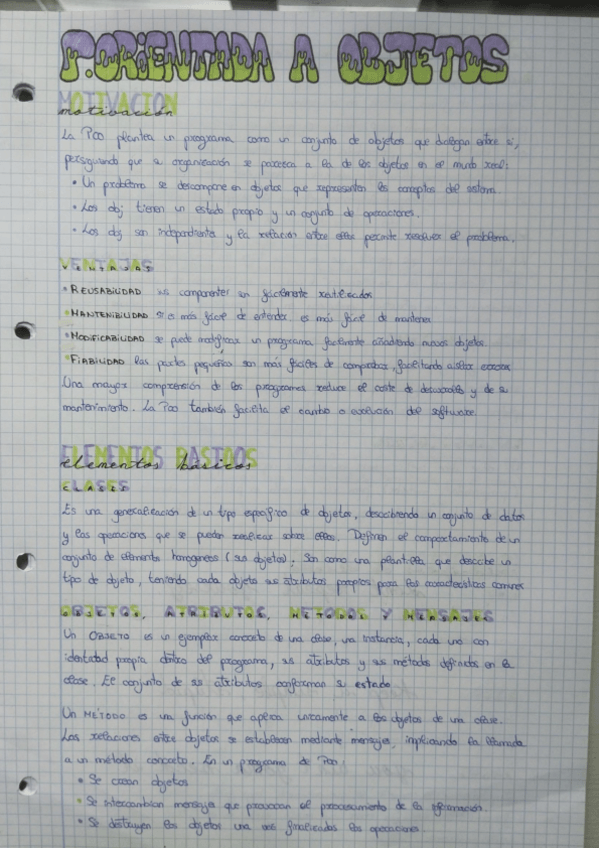 P. ORIENTADA A OBJETOS
MOTIVACION
motivación
La POO plantea un programa como un conjunto de objetos que dialogan entre si,
persiguiendo que su organización se parezca a la de los objetos en el mundo real:
• Un problema se descompone en objetos que representan los conceptos del sistema.
• Los obj tienen un estado propio y un conjunto de operaciones.
• Los obj son independientes y la relación entre ellos permite resolver el problema.
VENTAJAS
• REUSABILIDAD sus componentes son fácilmente reutilizados
• MANTENIBILIDAD si es más fácil de entender, es más fácil de mantener
• MODIFICABILIDAD se puede modificar un programa facilmente añadiendo nuevos objetos
• FIABILIDAD las partes pequeñas son más fáciles de comprobar, facilitando aislar errores
Una mayor comprensión de los programas reduce el coste de desarrollo y de su
mantenimiento. La POO también facilita el cambio o evolución del software.
ELEMENTOS BASICOS
elementos básicos
CLASES
Es una generalización de un tipo específico de objetos, describiendo un conjunto de datos
y las operaciones que se pueden realizar sobre ellos. Definen el comportamiento de un
conjunto de elementos homogeneos (sus objetos). Son como una plantilla que describe un
tipo de objeto, teniendo cada objeto sus atributos propios para las características comunes
OBJETOS, ATRIBUTOS, METODOS Y MENSAJES
Un OBJETO es un ejemplar concreto de una clase, una instancia, cada uno con
identidad propia dentro del programa, sus atributos y sus métodos definidos en la
clase. El conjunto de sus atributos conforman su estado
Un MÉTODO es una función que aplica unicamente a los objetos de una clase.
Las relaciones entre objetos se establecen mediante mensajes, implicando la llamada
a un método concreto. En un programa de POO:
• Se crean objetos
• Se intercambian mensajes que provocan el procesamiento de la información.
• Se destruyen los objetos una vez finalizadas las operaciones.